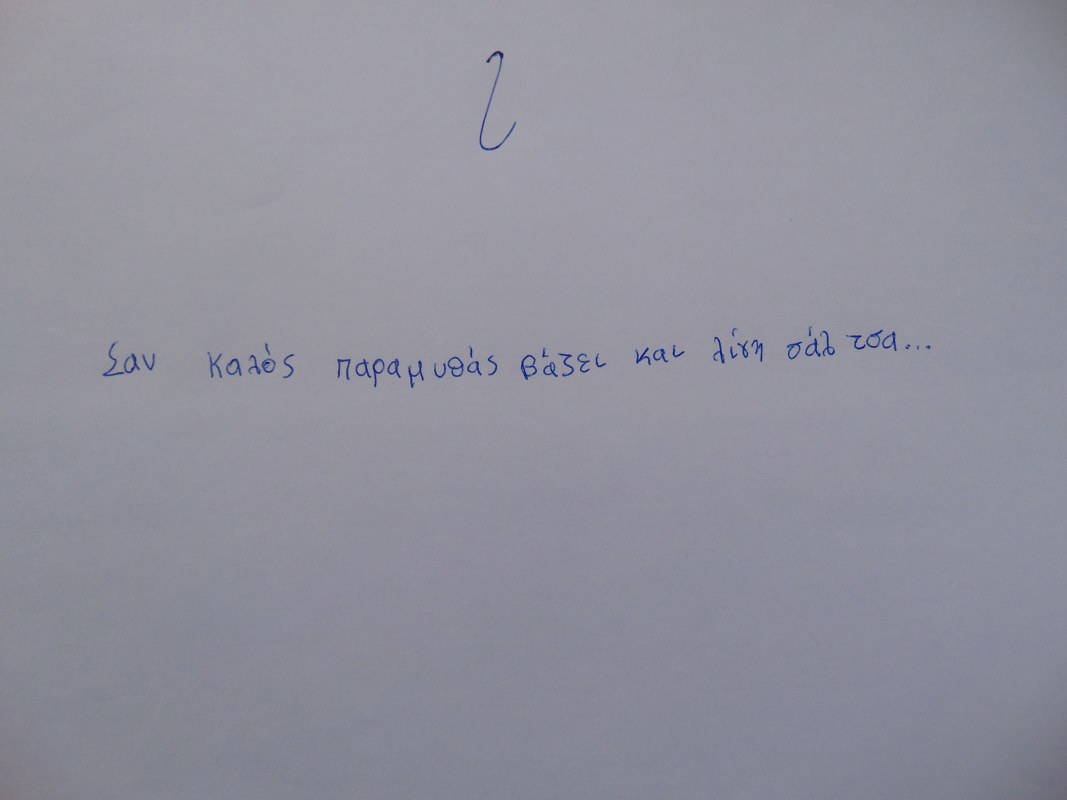 Σαν καλός παραμυθάς βάζει και λίγη σάλτσα...